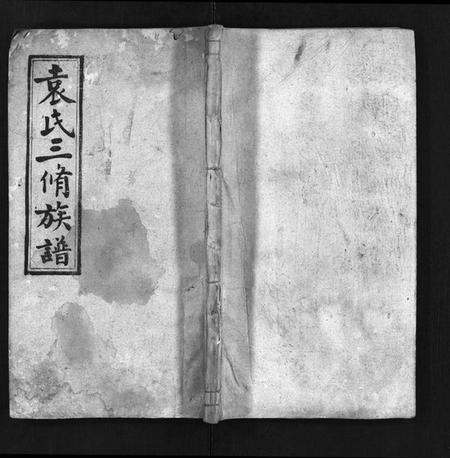 袁氏三脩族譜